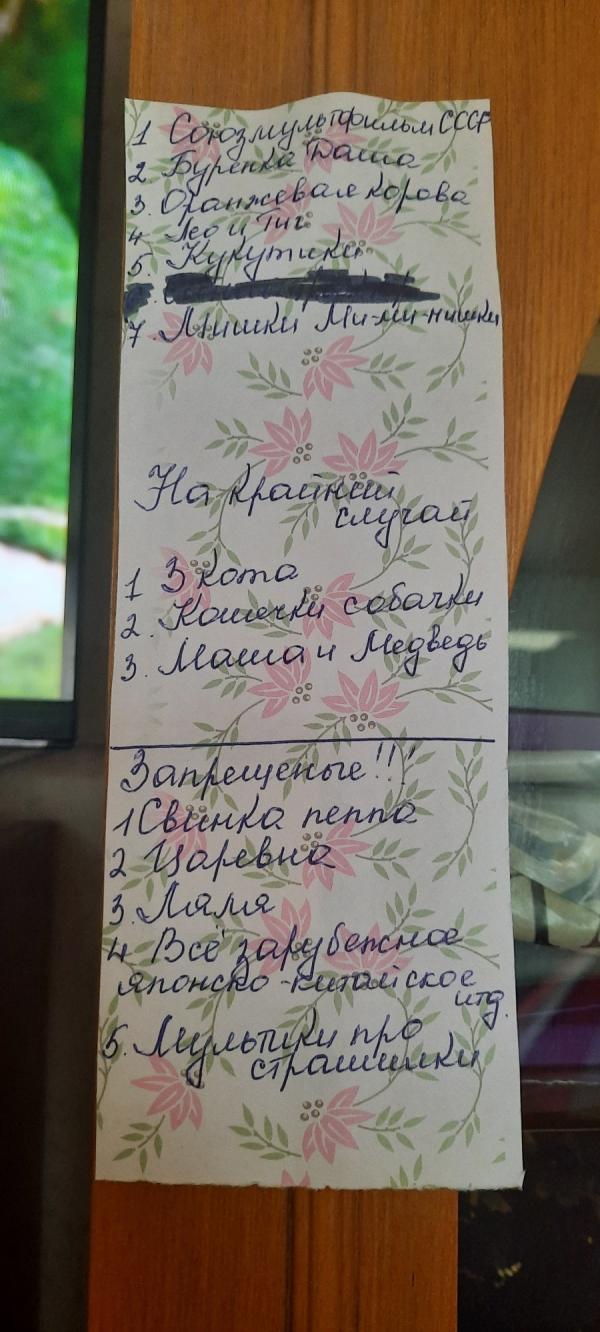 1 Союзмультфильм СССР
2 Буренка Даша
3. Оранжевая корова
4 Лео и Тиг
5. Кукутики
7 Мишки Ми-ми-мишки
На крайний
случай
1 3 кота
2. Кошечки собачки
3. Маша и Медведь
Запрещеные!!!
1 Свинка пеппа
2 Царевна
3. Ляля
4 Всё зарубежное
японско-китайское
итд.
5. Мультики про
страшилки